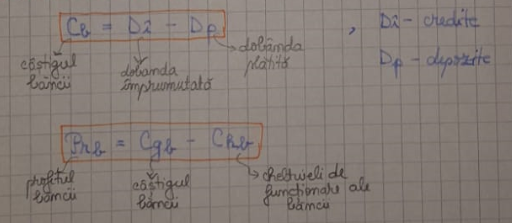 Cb = Dî - Dp , Dî - credite
Dp - depozite
câștigul băncii
dobânda împrumutată
dobânda plătită
Prb = Cgb - Chb
profitul băncii
câștigul băncii
cheltuieli de funcționare ale băncii